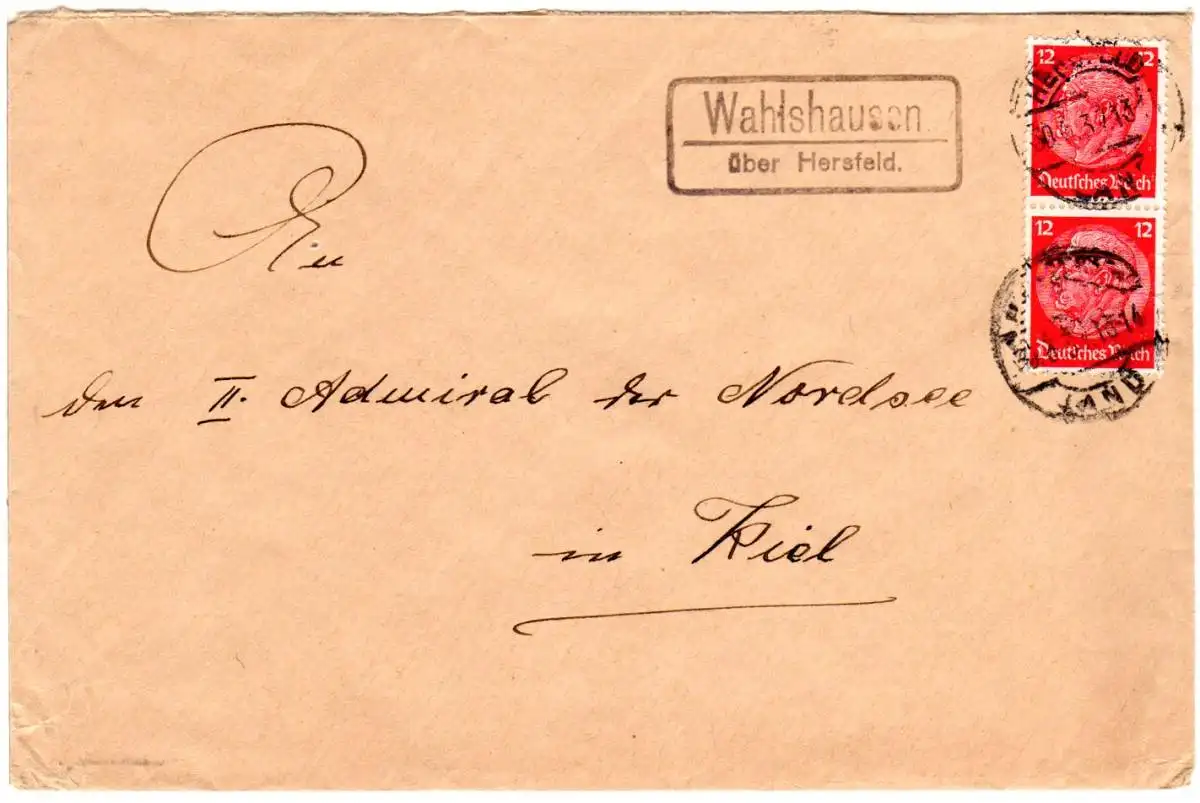 Wahlshausen
über Hersfeld.
12 12
Deutsches Reich
12 12
Deutsches Reich
An
den II. Admiral der Nordsee
in Kiel